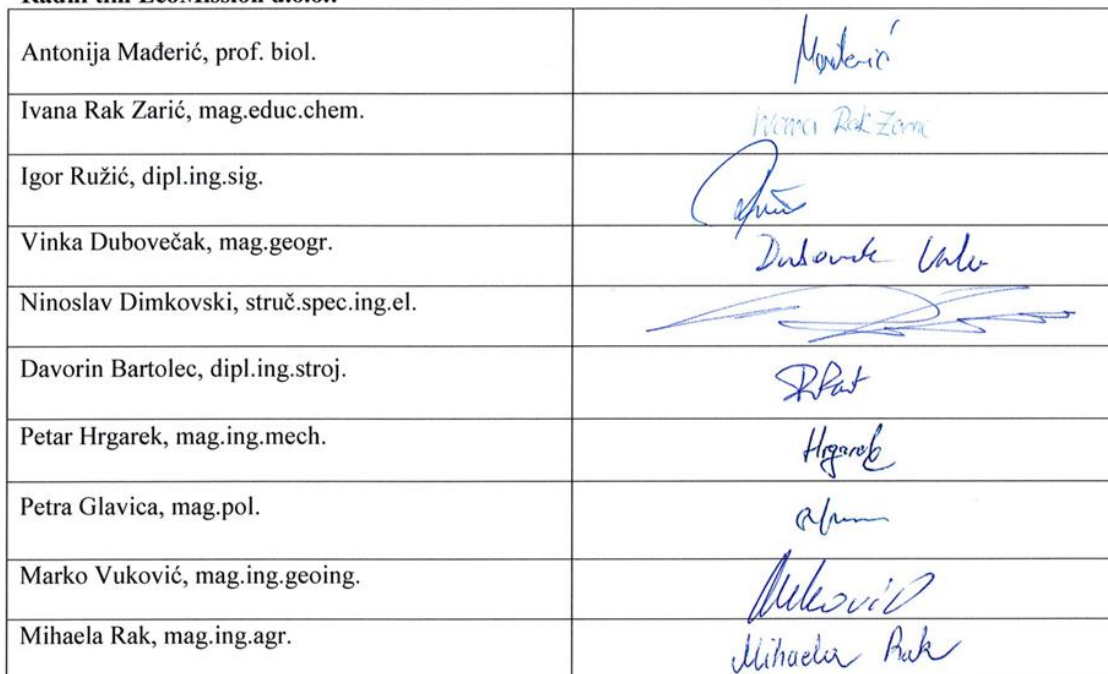 Radni tim EcoMission d.o.o.:
Antonija Mađerić, prof. biol.
Mađerić
Ivana Rak Zarić, mag.educ.chem.
Ivana Rak Zarić
Igor Ružić, dipl.ing.sig.
Vinka Dubovečak, mag.geogr.
Ninoslav Dimkovski, struč.spec.ing.el.
Davorin Bartolec, dipl.ing.stroj.
Petar Hrgarek, mag.ing.mech.
Hrgarek
Petra Glavica, mag.pol.
Marko Vuković, mag.ing.geoing.
Vuković
Mihaela Rak, mag.ing.agr.
Mihaela Rak